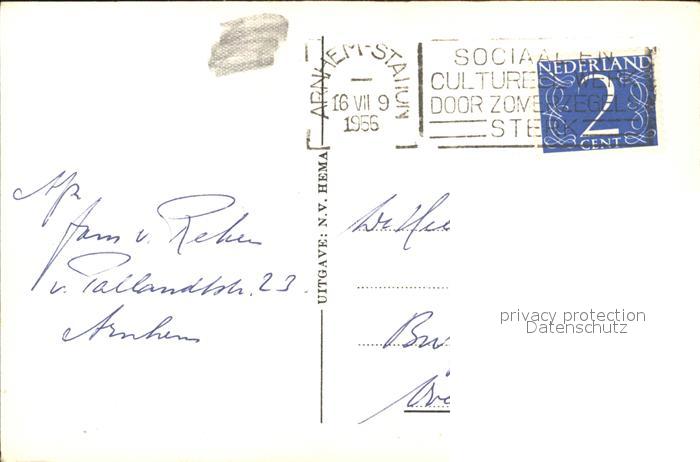 ARNHEM-STATION
16 VII 9
1956
SOCIAAL EN
CULTUREEL WERK
DOOR ZOMERZEGELS
STERK
NEDERLAND
2
CENT
UITGAVE: N.V. HEMA
Afz.
Fam v. Reken
v. Pallandtstr. 23.
Arnhem
De Hee
privacy protection
Datenschutz